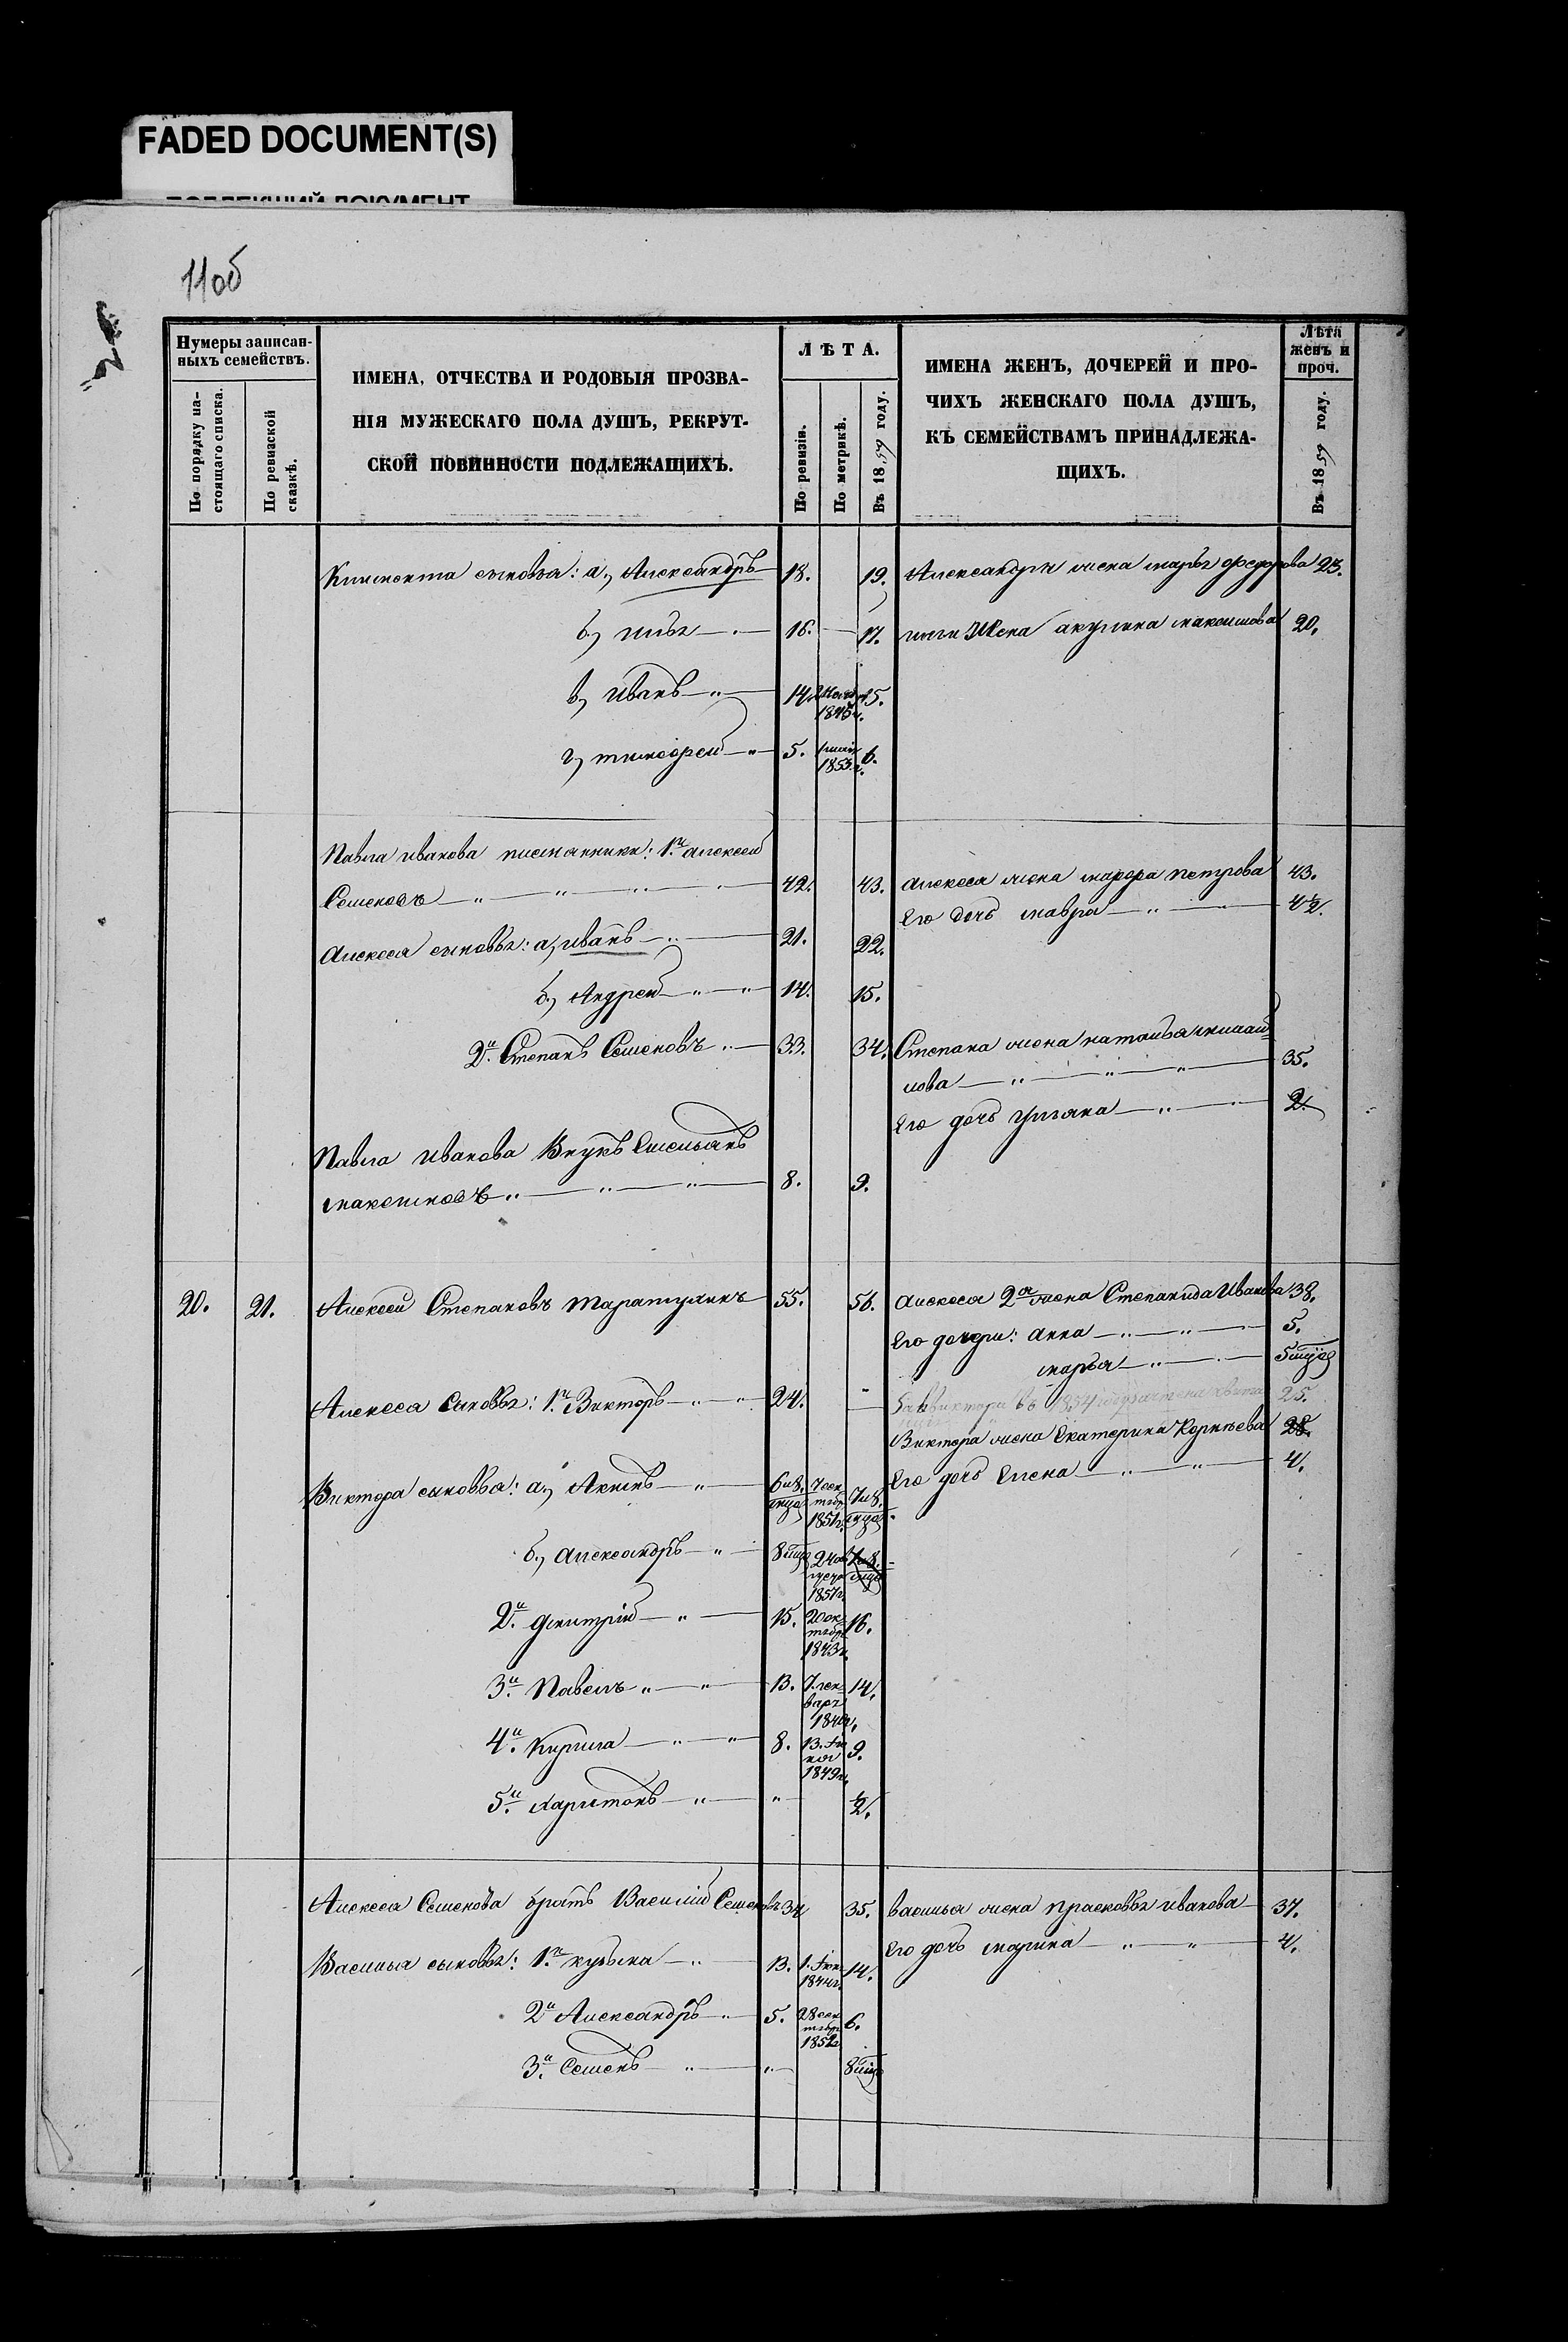 FADED DOCUMENT(S)
11об
Нумеры записан-
ныхъ семействъ.
По порядку на-
стоящаго списка.
По ревизской
сказкѣ.
ИМЕНА, ОТЧЕСТВА И РОДОВЫЯ ПРОЗВА-
НІЯ МУЖЕСКАГО ПОЛА ДУШЪ, РЕКРУТ-
СКОЙ ПОВИННОСТИ ПОДЛЕЖАЩИХЪ.
ЛѢТА.
По ревизіи.
По метрикѣ.
Въ 1859 году.
ИМЕНА ЖЕНЪ, ДОЧЕРЕЙ И ПРО-
ЧИХЪ ЖЕНСКАГО ПОЛА ДУШЪ,
КЪ СЕМЕЙСТВАМЪ ПРИНАДЛЕЖА-
ЩИХЪ.
Лѣта
женъ и
проч.
Въ 1859 году.
Климента сыновья: а, Александръ 18. 19. Александра жена марья федорова 23.
б, илья 16. 17. ильи жена акулина максимова 20.
в, иванъ 14. 1845 15.
г, тимофей 5. 1853 6.
Павла иванова племянники: 1й алексей
Семеновъ 42. 43. алексея жена марфа петрова 43.
Его дочь мавра
Алексея сыновья: а, иванъ 21. 22.
б, Андрей 14. 15.
2й Степанъ Семеновъ 33. 34. Степана жена наталья михай
лова 35.
Его дочь ульяна 2.
Павла иванова внукъ Емельянъ
максимовъ 8. 9.
20. 21. Алексей Степановъ 55. 56. алексея 2я жена Степанида Иванова 38.
Его дочери: анна 5.
марья
Алексея сыновья: 1й Викторъ 24. 25.
Виктора жена Екатерина Корнѣева 28.
Его дочь Елена 4.
Виктора сыновья: а, 1851г.
б, александръ 1857г.
2й дмитрій 15. 20 ок-
тябр 1843г. 16.
3й Павелъ 13. 7 ген-
варя 14.
4й Кирила 8. 13. 1849г. 9.
5й харитонъ 1/2.
Алексея Семенова братъ Василій Семеновъ 34 35. василья жена прасковья иванова 37.
Его дочь марина 4.
Василья сыновья: 1й кузьма 13. 1844г. 14.
2й Александръ 5. 28 сен
тябр 1852 6.
3й Семенъ